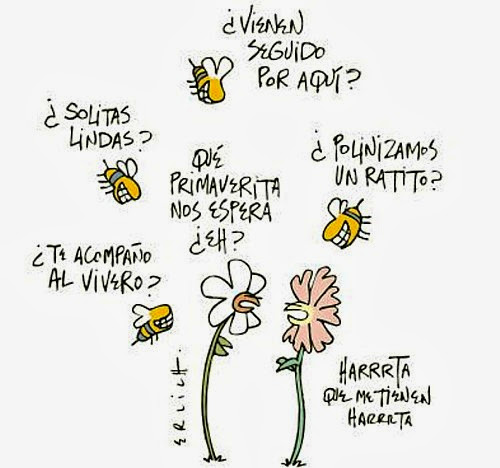 ¿VIENEN
SEGUIDO
POR AQUÍ?
¿SOLITAS
LINDAS?
¿POLINIZAMOS
UN RATITO?
QUÉ
PRIMAVERITA
NOS ESPERA
¿EH?
¿TE ACOMPAÑO
AL VIVERO?
HARRRTA
QUE ME TIENEN
HARRRTA
ERLICH.